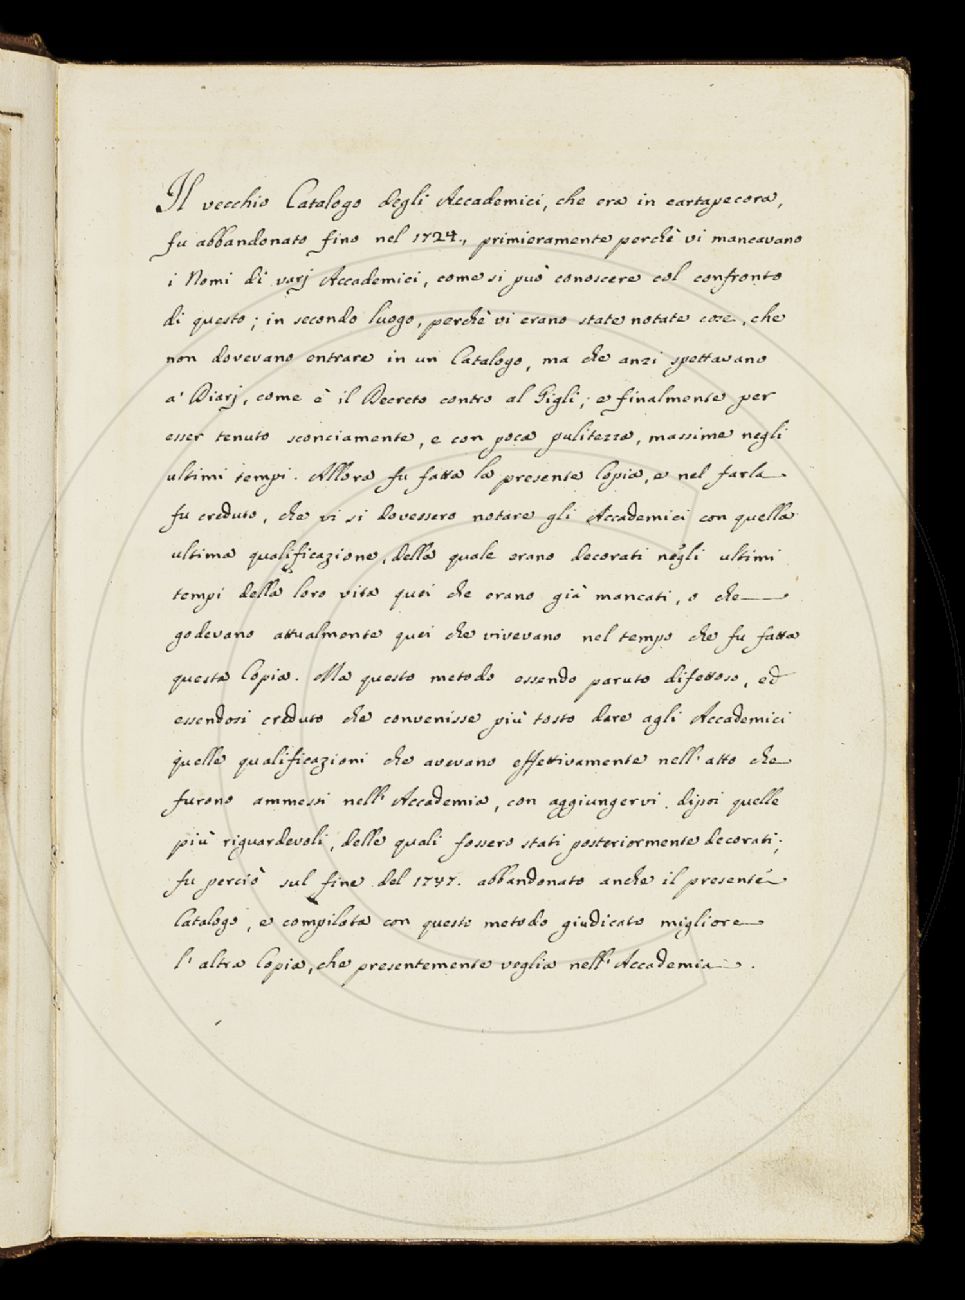 Il vecchio Catalogo degli Accademici, che era in cartapecora,
fu abbandonato fino nel 1724., primieramente perchè vi mancavano
i Nomi di varj Accademici, come si può conoscere col confronto
di questo; in secondo luogo, perchè vi erano state notate cose, che
non dovevano entrare in un Catalogo, ma che anzi spettavano
a' Diarj, come è il Decreto contro al Gigli; e finalmente per
esser tenuto sconciamente, e con poca pulitezza, massime negli
ultimi tempi. Allora fu fatta la presente Copia, e nel farla
fu creduto, che vi si dovessero notare gli Accademici con quella
ultima qualificazione, della quale erano decorati negli ultimi
tempi della loro vita quei che erano già mancati, o che
godevano attualmente quei che vivevano nel tempo che fu fatta
questa Copia. Ma questo metodo essendo paruto difettoso, ed
essendosi creduto che convenisse più tosto dare agli Accademici
quelle qualificazioni che avevano effettivamente nell' atto che
furono ammessi nell' Accademia, con aggiungervi dipoi quelle
più riguardevoli, delle quali fossero stati posteriormente decorati;
fu perciò sul fine del abbandonato anche il presente
Catalogo, e compilata con questo metodo giudicato migliore
l' altra Copia, che presentemente veglia nell' Accademia.